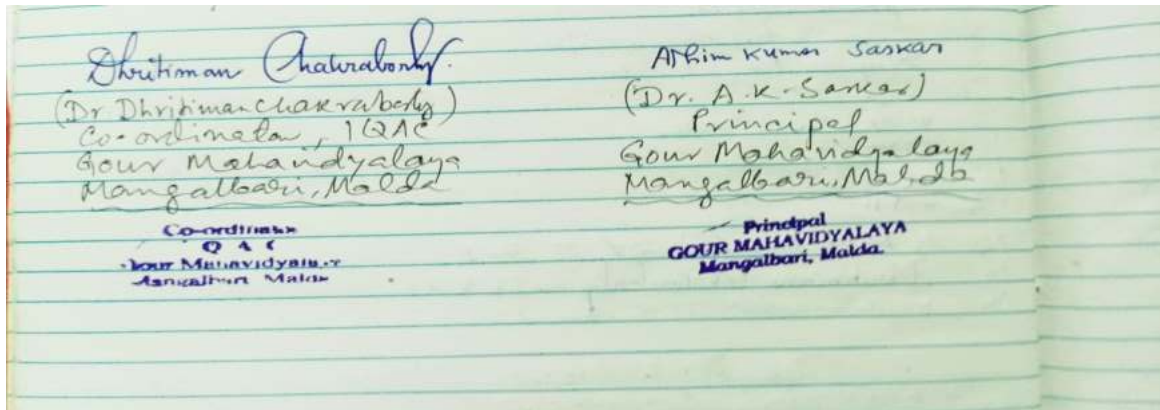 Dhritiman Chakraborty.
(Dr. Dhritiman Chakraborty)
Co-ordinator, IQAC
Gour Mahavidyalaya
Mangalbari, Malda
Co-ordinator
Q A C
Gour Mahavidyalaya
Mangalbari Malda
Ashim Kumar Sarkar
(Dr. A. K. Sarkar)
Principal
Gour Mahavidyalaya
Mangalbari, Malda
Principal
GOUR MAHAVIDYALAYA
Mangalbari, Malda.